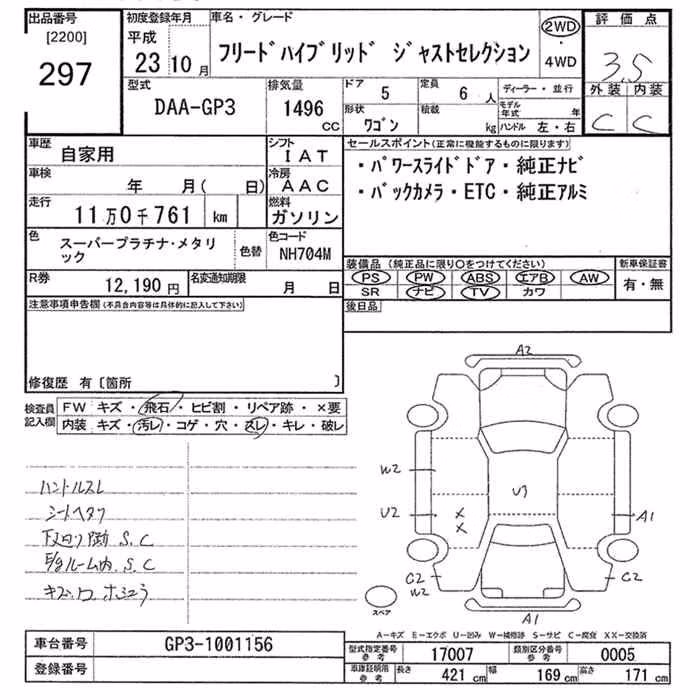 出品番号
[2200]
297
初度登録年月
平成
23年10月
車名・グレード
フリードハイブリッド ジャストセレクション
2WD
・
4WD
評価点
3.5
外装 内装
C C
型式
DAA-GP3
排気量
1496
CC
ドア 5
形状 ワゴン
定員 6 人
積載 kg
ディーラー・並行
モデル年式 年
ハンドル 左・右
車歴 自家用
シフト IAT
車検 年 月( 日)
冷房 AAC
走行 11万0千761 km
燃料 ガソリン
色 スーパープラチナ・メタリック
色替
色コード NH704M
R券 12,190円
名変通知期限 月 日
セールスポイント(正常に機能するものに限ります)
・パワースライドドア・純正ナビ
・バックカメラ・ETC・純正アルミ
装備品 (純正品に限り○をつけてください)
PS PW ABS エアB AW
SR ナビ TV カワ
新車保証書
有・無
後日品
注意事項申告欄(不具合内容等は具体的に記入して下さい)
修復歴 有〔箇所 〕
検査員記入欄
FW キズ・飛石・ヒビ割・リペア跡・×要
内装 キズ・汚レ・コゲ・穴・スレ・キレ・破レ
ハンドルスレ
シートヘタリ
下廻り S.C
E/gルーム内 S.C
A2
W2
U2
U3
A1
C2
W2
C2
A1
スペア
A-キズ E-エクボ U-凹み W-補修跡 S-サビ C-腐食 XX-交換済
車台番号 GP3-1001156
登録番号
型式指定番号 参考 17007
類別区分番号 参考 0005
車庫証明用 参考 長さ 421 cm 幅 169 cm 高さ 171 cm